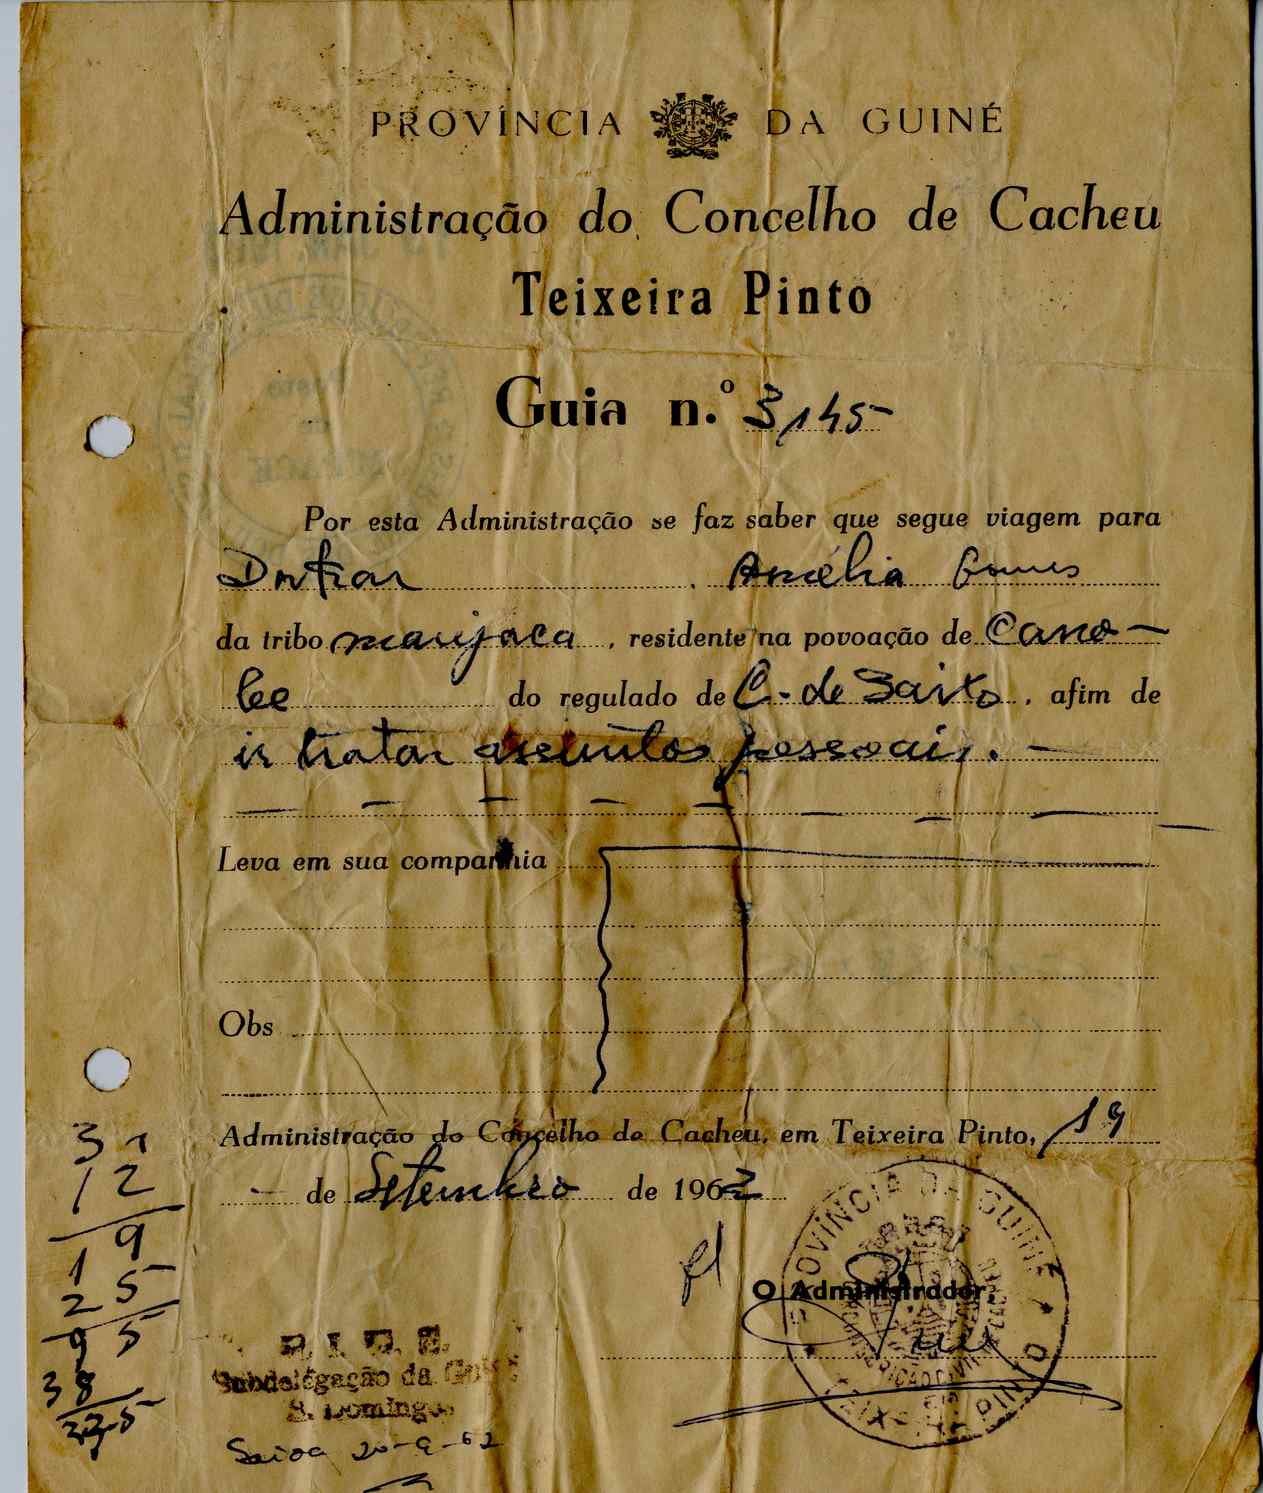 PROVÍNCIA DA GUINÉ
Administração do Concelho de Cacheu
Teixeira Pinto
Guia n.º 3145-
Por esta Administração se faz saber que segue viagem para
Amélia Gomes
da tribo manjaca, residente na povoação de Cano-
do regulado de C. de Baixo, afim de
ir tratar assuntos pessoais. -
Leva em sua companhia
Obs
Administração do Concelho de Cacheu, em Teixeira Pinto, 19
- de Setembro de 1962
O Administrador,
PROVÍNCIA DA GUINÉ
TEIXEIRA PINTO
P. I. D. E.
Subdelegação da Guiné
S. Domingos
Saiba 20-9-62
31
12
19
25
95
38